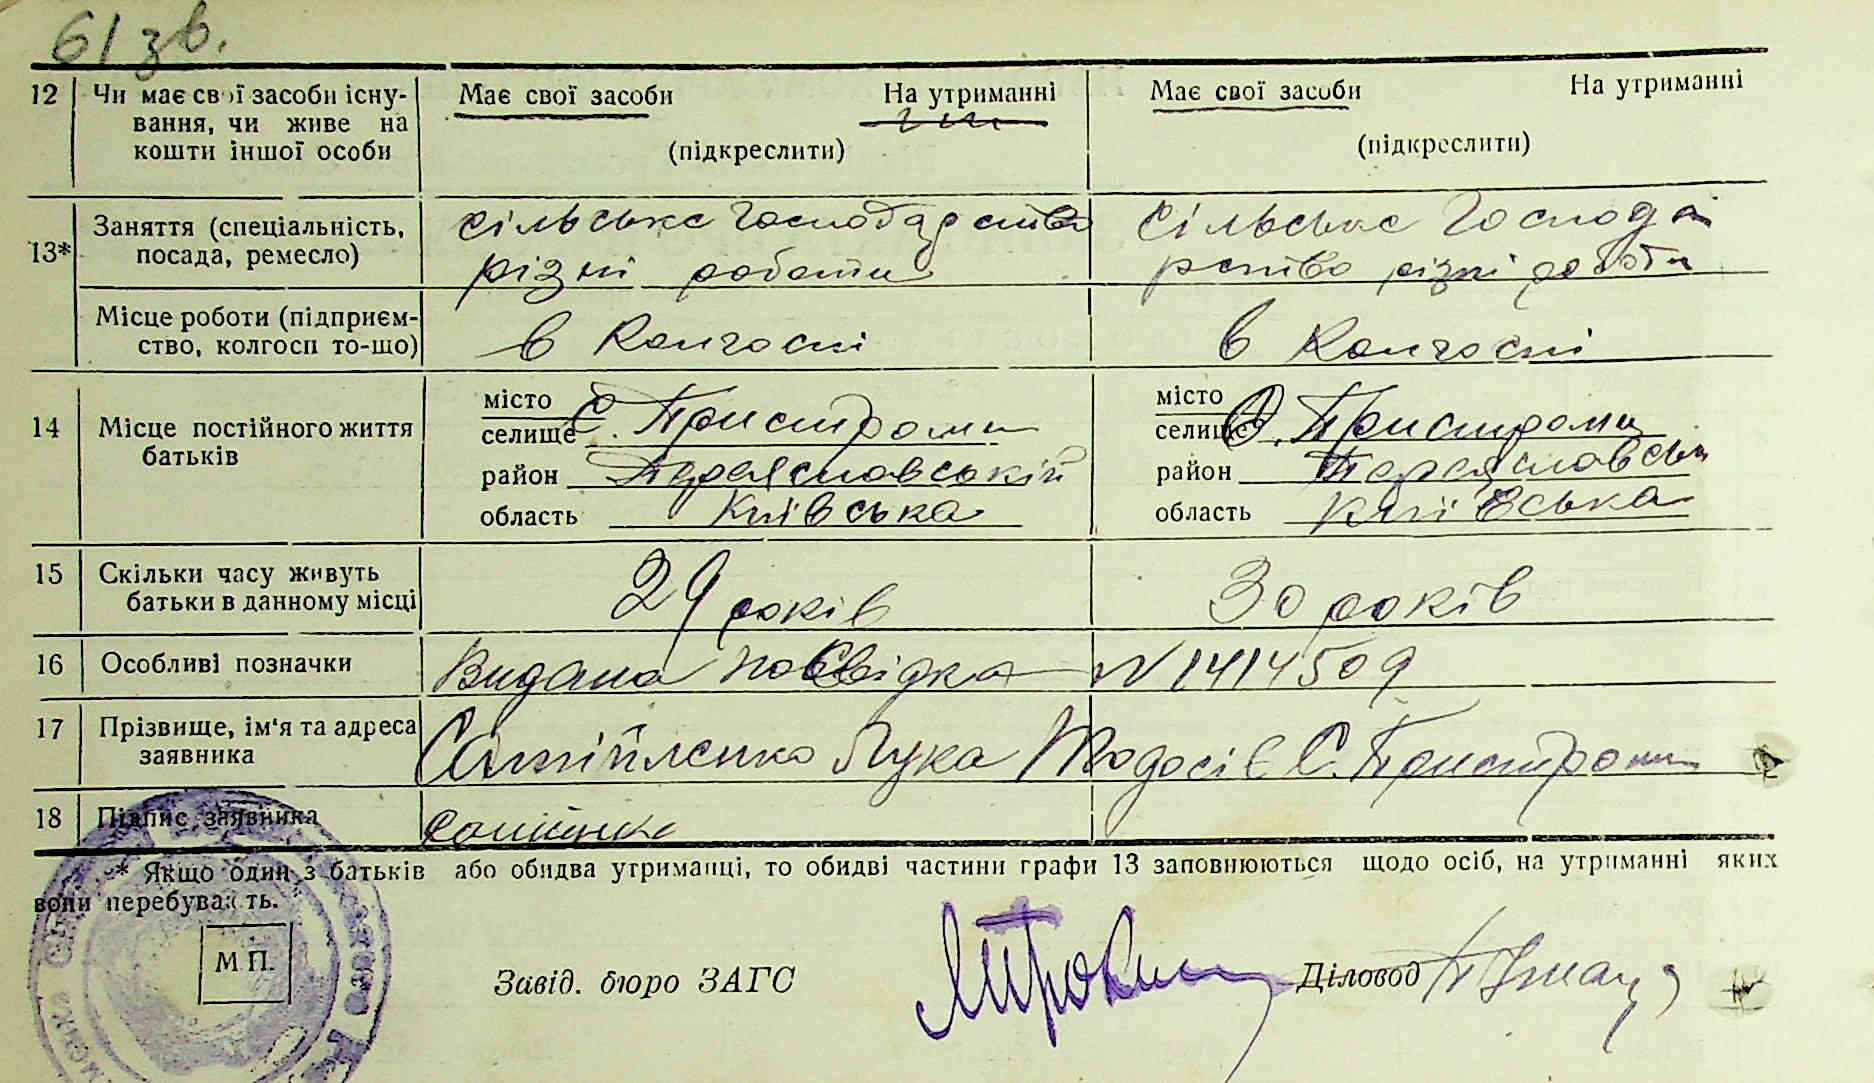 61 зв.
12 Чи має свої засоби існу-
вання, чи живе на
кошти іншої особи
Має свої засоби На утриманні
(підкреслити)
Має свої засоби На утриманні
(підкреслити)
13* Заняття (спеціальність,
посада, ремесло)
сільське господарство
різні роботи
сільське господа
рство різні роботи
Місце роботи (підприєм-
ство, колгосп то-що)
в колгоспі
в колгоспі
14 Місце постійного життя
батьків
місто
селище С. Пристроми
район Переяславській
область Київська
місто
селище С. Пристроми
район Переяславськи
область Київська
15 Скільки часу живуть
батьки в данному місці
29 років
30 років
16 Особливі позначки
Видана посвідка N 1414509
17 Прізвище, ім'я та адреса
заявника
Лука Тодосіє С. Пристроми
18 Підпис заявника
* Якщо один з батьків або обидва утриманці, то обидві частини графи 13 заповнюються щодо осіб, на утриманні яких
вони перебувають.
М П.
Завід. бюро ЗАГС
Діловод